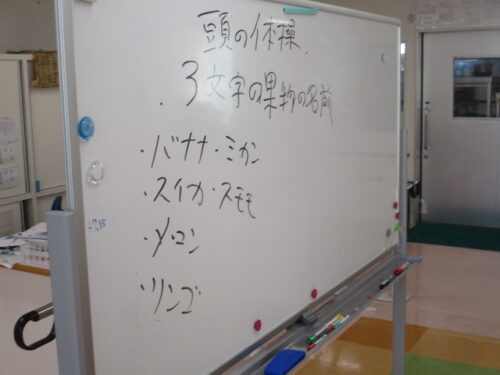 頭の体操
3文字の果物の名前
・バナナ・ミカン
・スイカ・スモモ
・メロン
・リンゴ